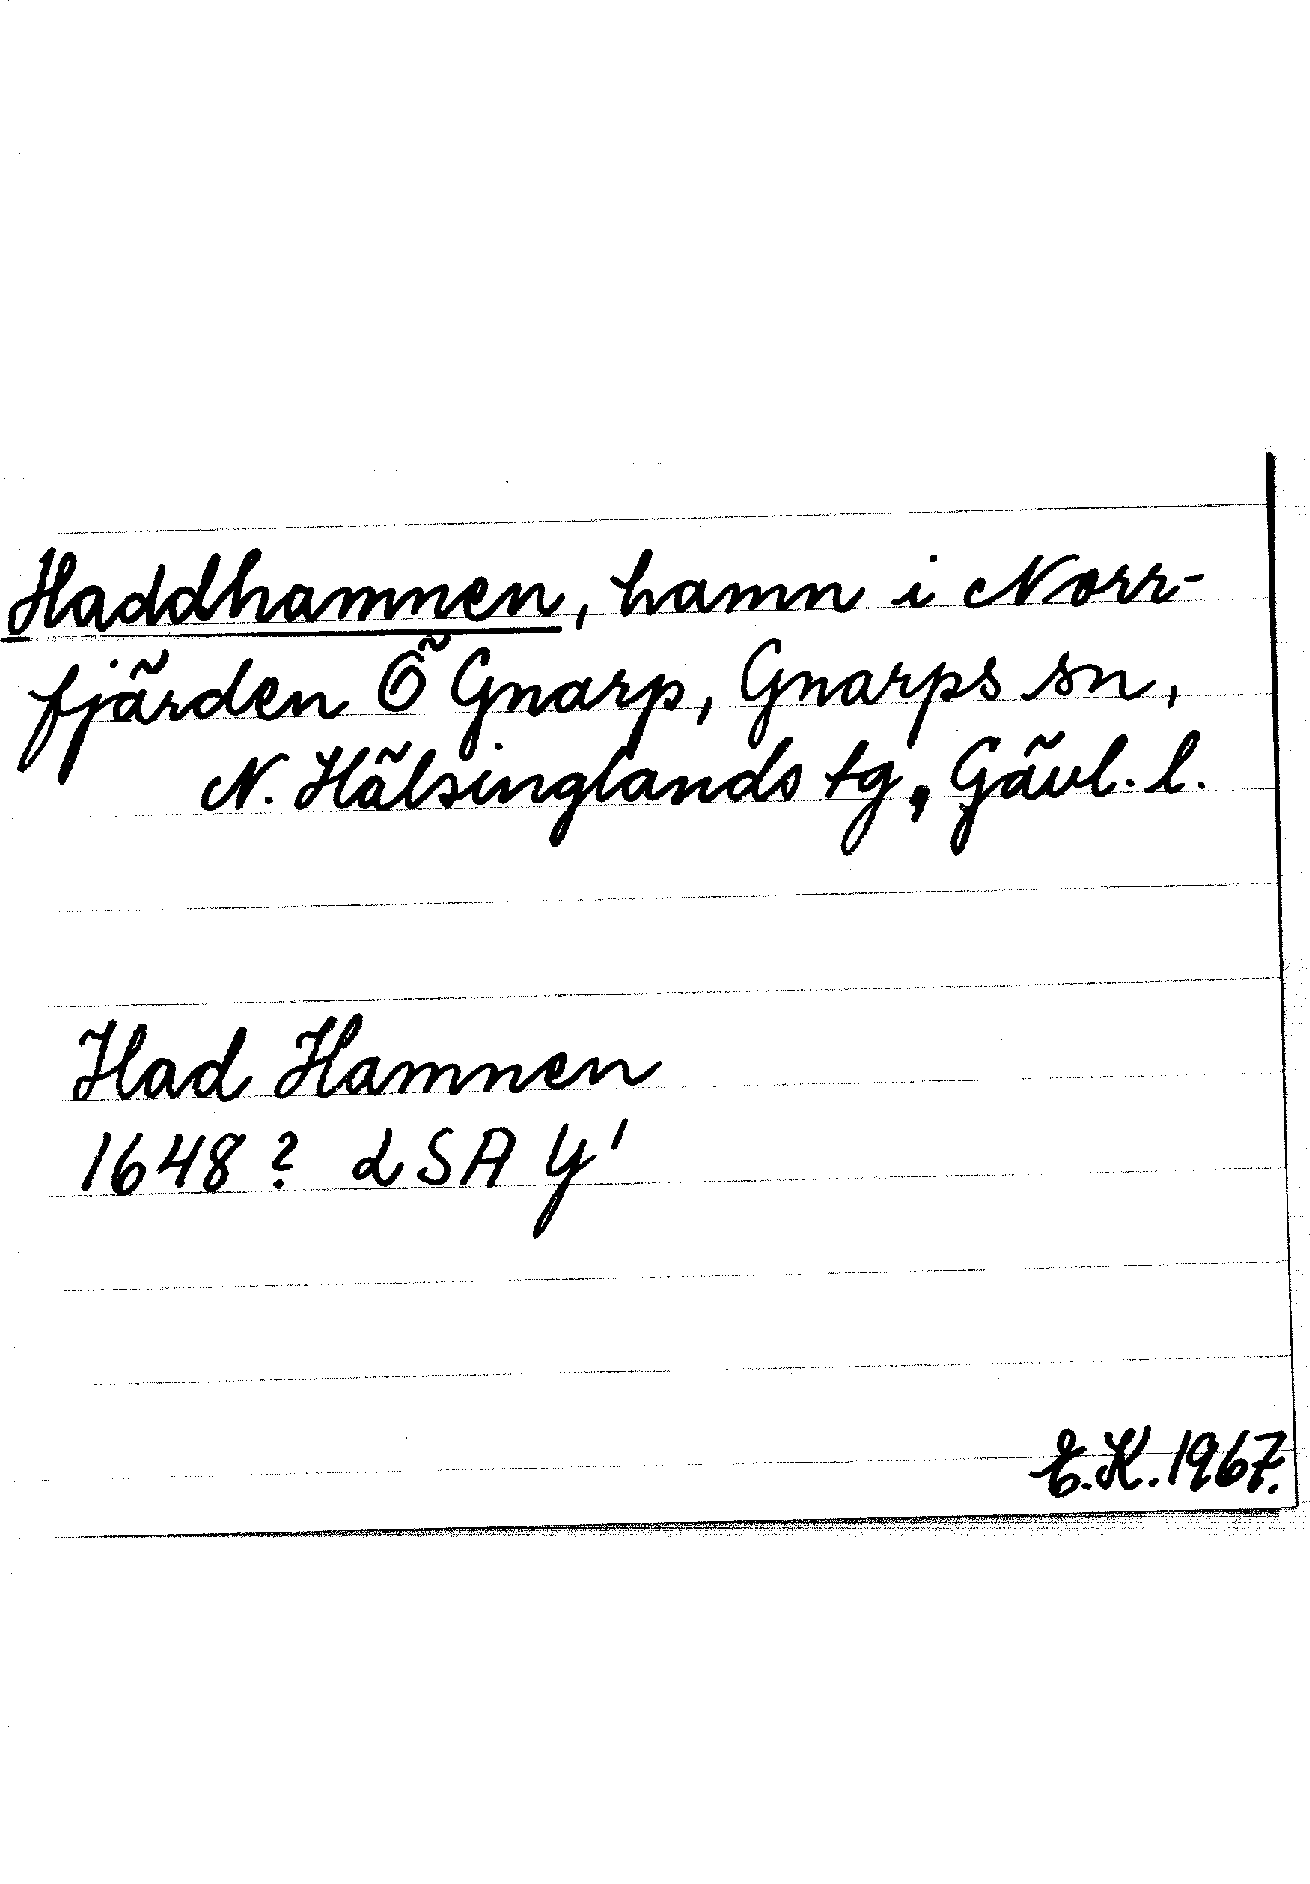 Haddhamnen, hamn i Norr-
fjärden Ö Gnarp, Gnarps sn,
N. Hälsinglands tg, Gävl. l.
Had Hamnen
1648? LSA Y'
E.K. 1967.